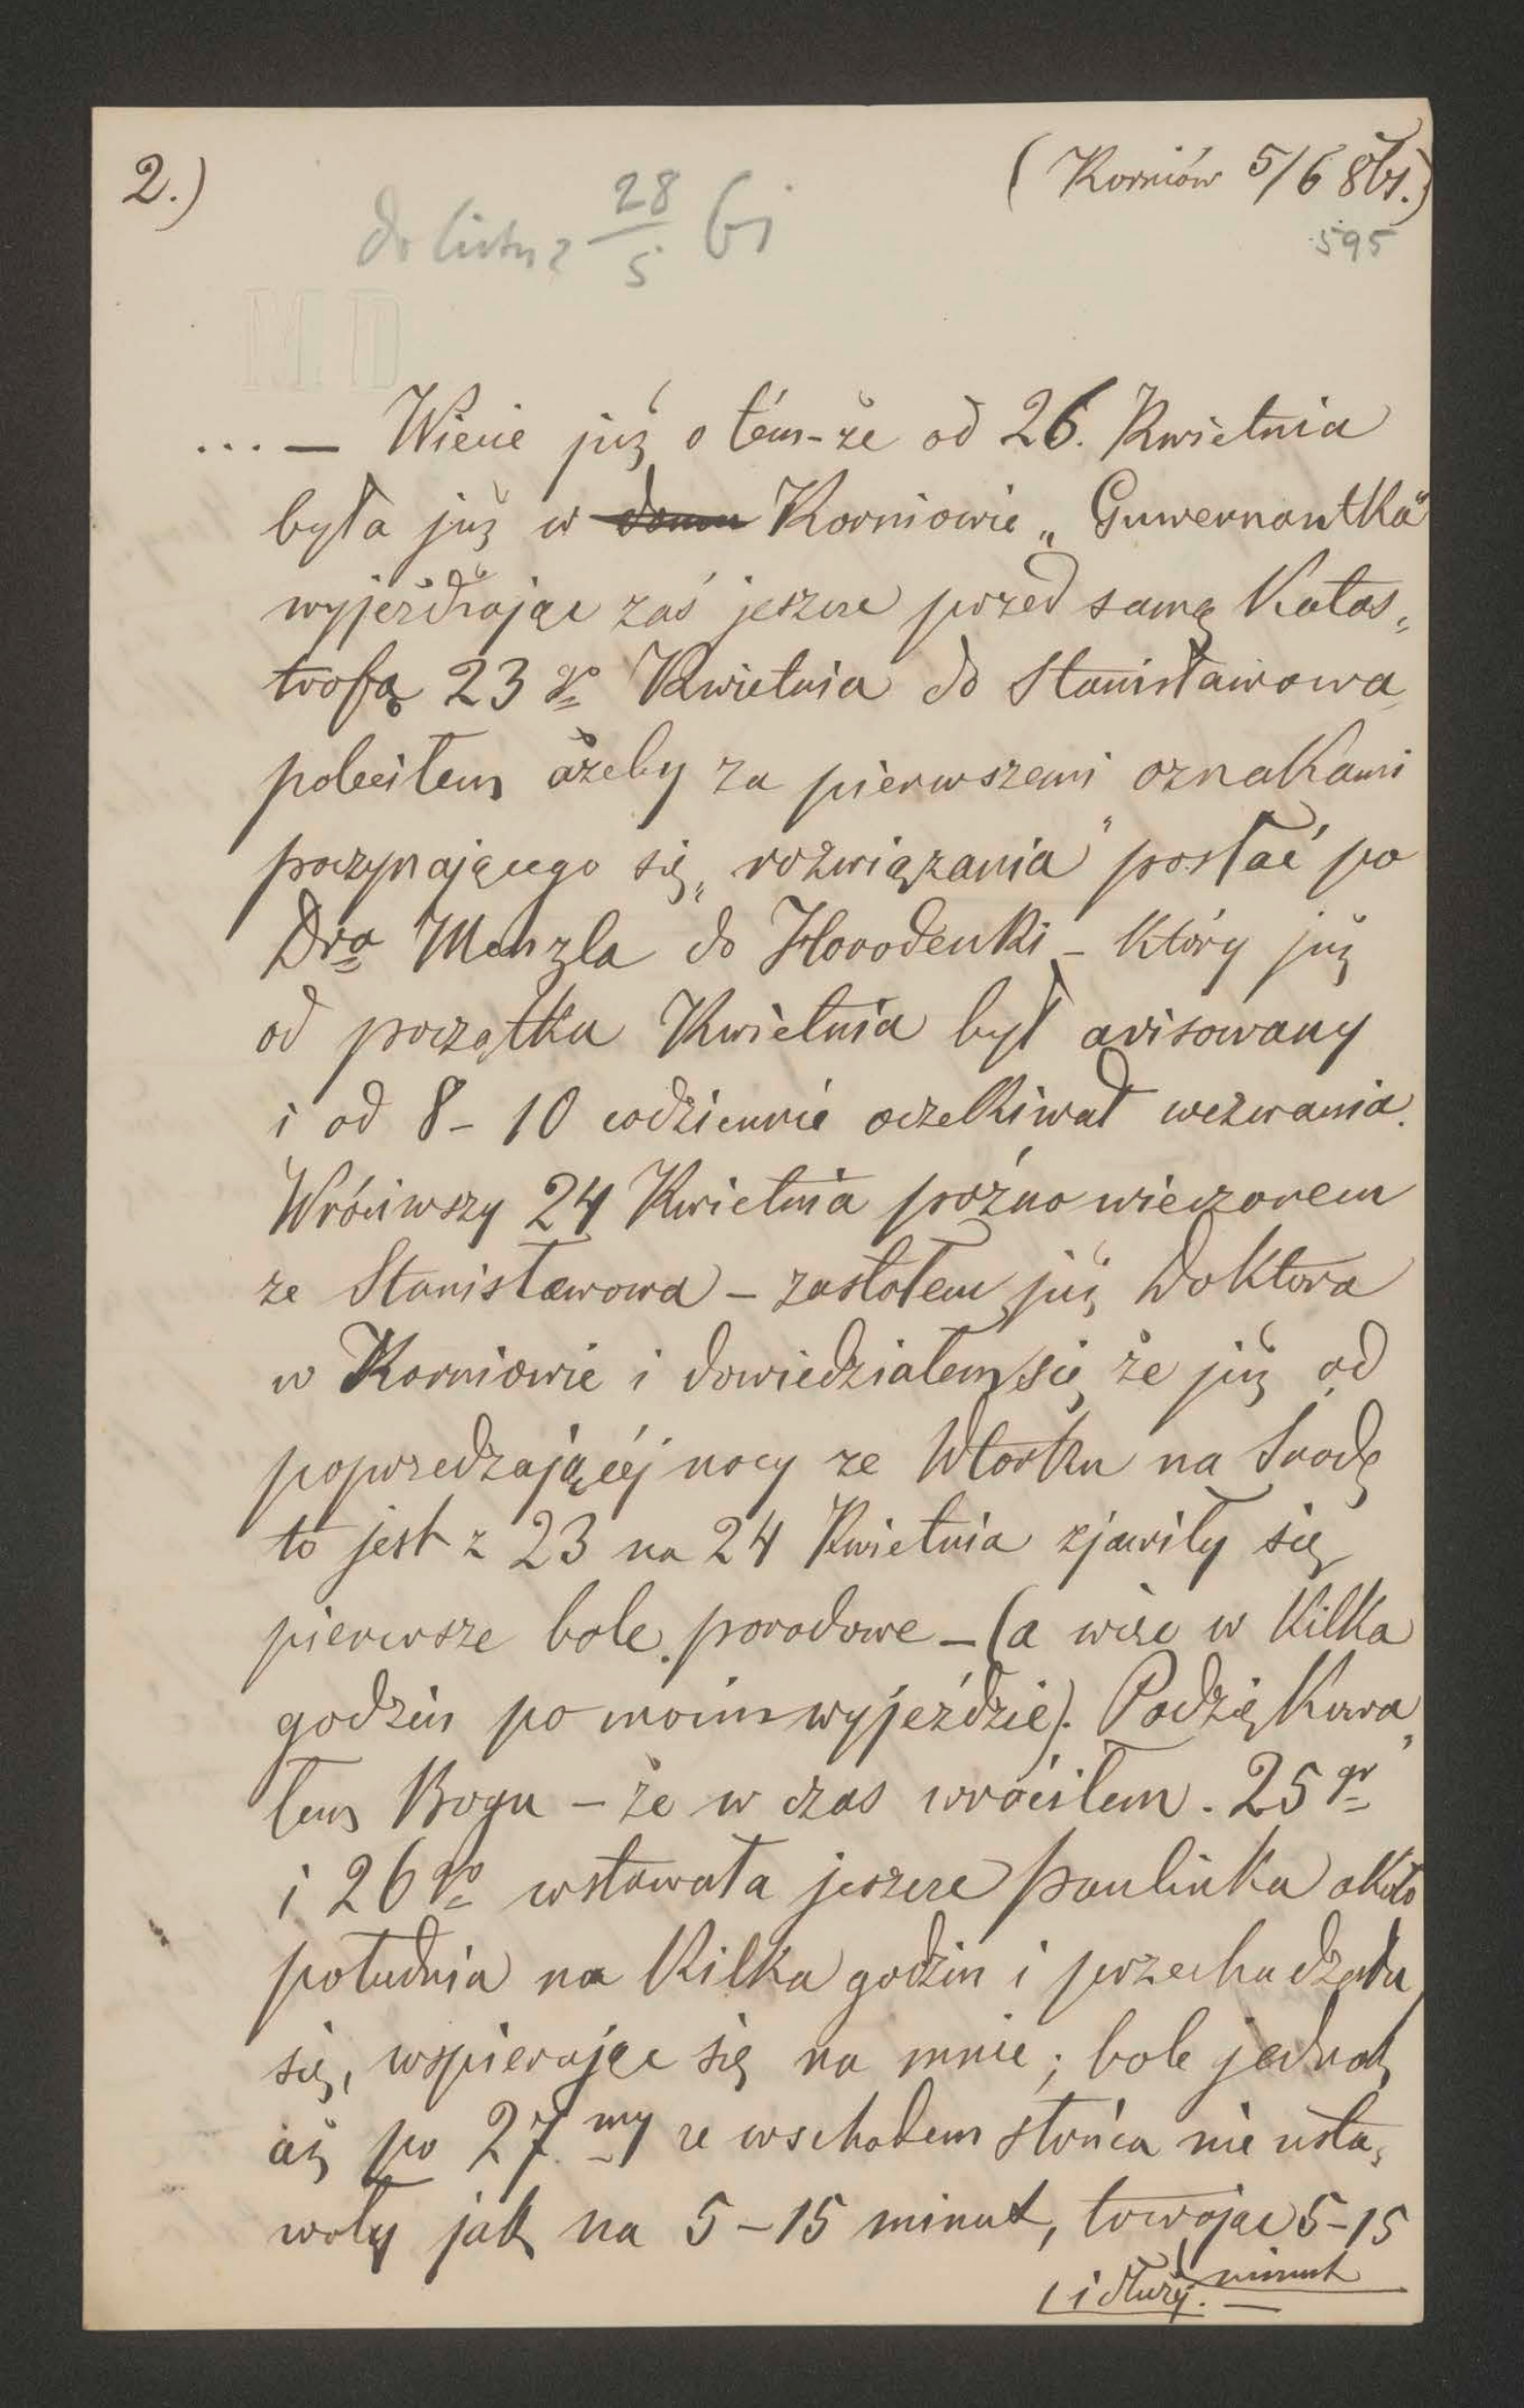 2.)
(Korniów 5/6 861.)
do listu z 28/5 61
595
M.D
... — Wiecie już o tém-że od 26. Kwietnia
była już w domu Korniowie „Guwernantka"
wyjeżdżając zaś jeszcze przed samą Katas„
trofą 23go Kwietnia do Stanisławowa
poleciłem ażeby za pierwszemi oznakami
poczynającego się „rozwiązania" posłać po
Dra Menzla do Horodenki – który już
od początku Kwietnia był avisowany
i od 8 – 10 codziennie oczekiwał wezwania.
Wróciwszy 24 Kwietnia późno wieczorem
ze Stanisławowa – zastałem już Doktora
w Korniowie i dowiedziałem się że już od
poprzedzającéj nocy ze Wtorku na Srodę
to jest z 23 na 24 Kwietnia zjawiły się
pierwsze bole porodowe – (a więc w Kilka
godzin po moim wyjeździe). PodzięKowa„
łem Bogu – że w czas wróciłem. 25go
i 26go wstawała jeszcze Paulinka około
południa na Kilka godzin i przechadzała
się, wspierając się na mnie; bole jednak
aż po 27my ze wschodem słońca nie usta„
wały jak na 5–15 minut, trwając 5–15
minut
i dłużéj.